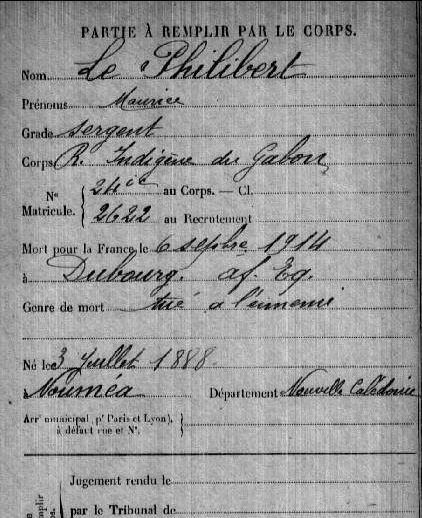 PARTIE À REMPLIR PAR LE CORPS.
Nom Le Philibert
Prénoms Maurice
Grade sergent
Corps R. Indigène du Gabon
Nº 24 au Corps. — Cl.
Matricule. 2622 au Recrutement
Mort pour la France le 6 sepbre 1914
à Dubourg. af. Eq.
Genre de mort tué à l'ennemi
Né le 3 Juillet 1888
à Nouméa Département Nouvelle Calédonie
Arrt municipal (pr Paris et Lyon),
à défaut rue et Nº.
Jugement rendu le
par le Tribunal de